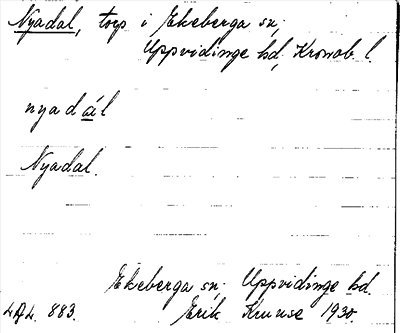 Nyadal, torp i Ekeberga sn;
Uppvidinge hd, Kronob. l.
nyadál
Nyadal.
Ekeberga sn. Uppvidinge hd.
LAL. 883. Erik Kruuse 1930.